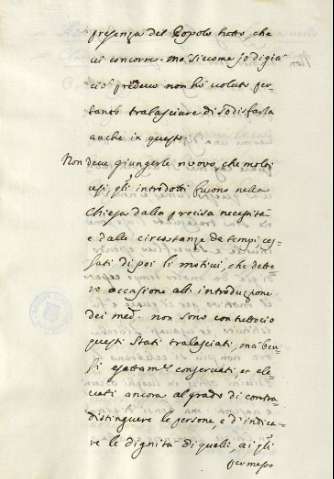 presenza del Popolo tutto, che
ci concorre. ma siccome io di già
ciò predeco non hò voluto per
tanto tralasciare di sodisfarla
anche in questo.
Non deve giungerle nuovo, che molti
usi, gl'introdotti furono nella
Chiesa dalla precisa necessità
e dalle circostanze de tempi, ces-
sati di poi li motivi, che dette-
ro occasione all'introduzione
dei med. non sono con tuttociò
questi stati tralasciati, ma ben-
sì esattam.e conservati et ele-
vati ancora al grado di contra-
distinguere le persone, e d'indica-
re le dignità di quelli, ai qli
permesso